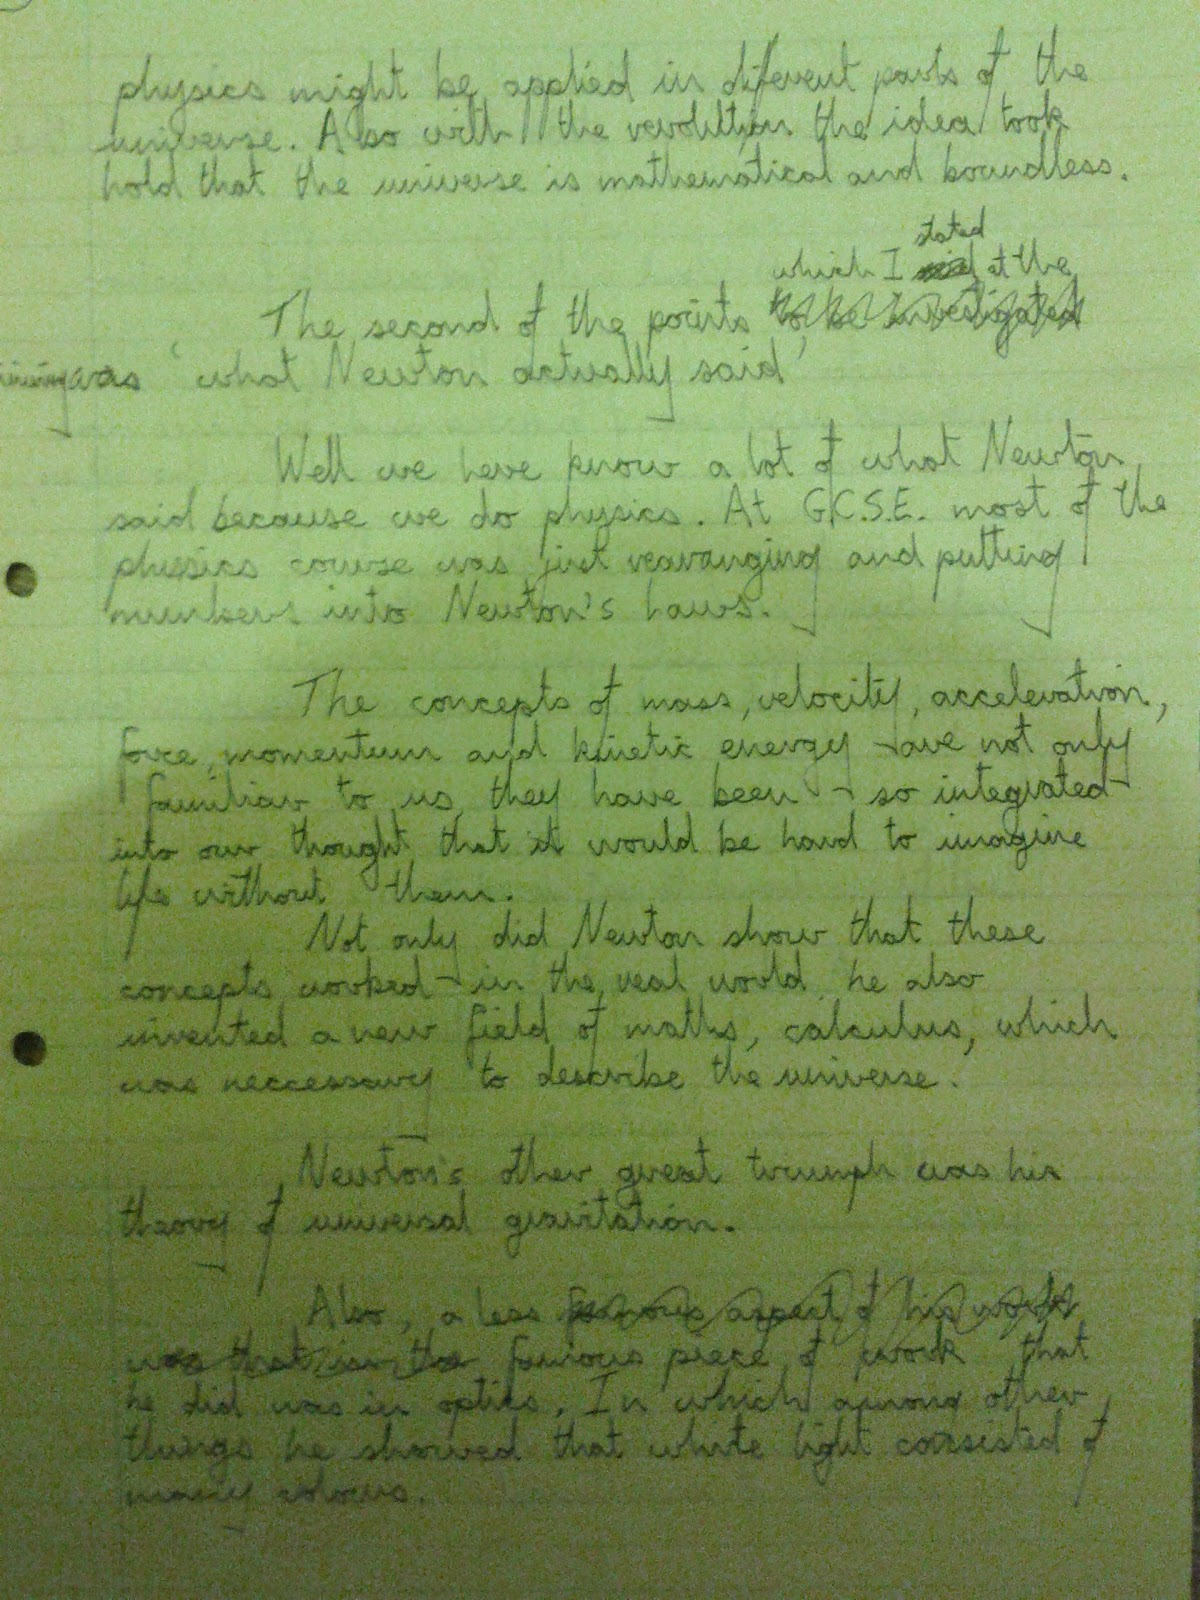 physics might be applied in different parts of the
universe. Also with the revolution the idea took
hold that the universe is mathematical and boundless.
stated
which I said at the
The second of the points to be investigated
was 'what Newton actually said'
Well we have know a lot of what Newton
said because we do physics. At G.C.S.E. most of the
physics course was just rearranging and putting
numbers into Newton's Laws.
The concepts of mass, velocity, acceleration,
force, momentum and kinetic energy are not only
familiar to us, they have been so integrated
into our thought that it would be hard to imagine
life without them.
Not only did Newton show that these
concepts worked in the real world, he also
invented a new field of maths, calculus, which
was neccessary to describe the universe.
Newton's other great triumph was his
theory of universal gravitation.
Also, a less famous aspect of his work
was that in the famous piece of work that
he did was in optics. In which among other
things he showed that white light consisted of
many colours.